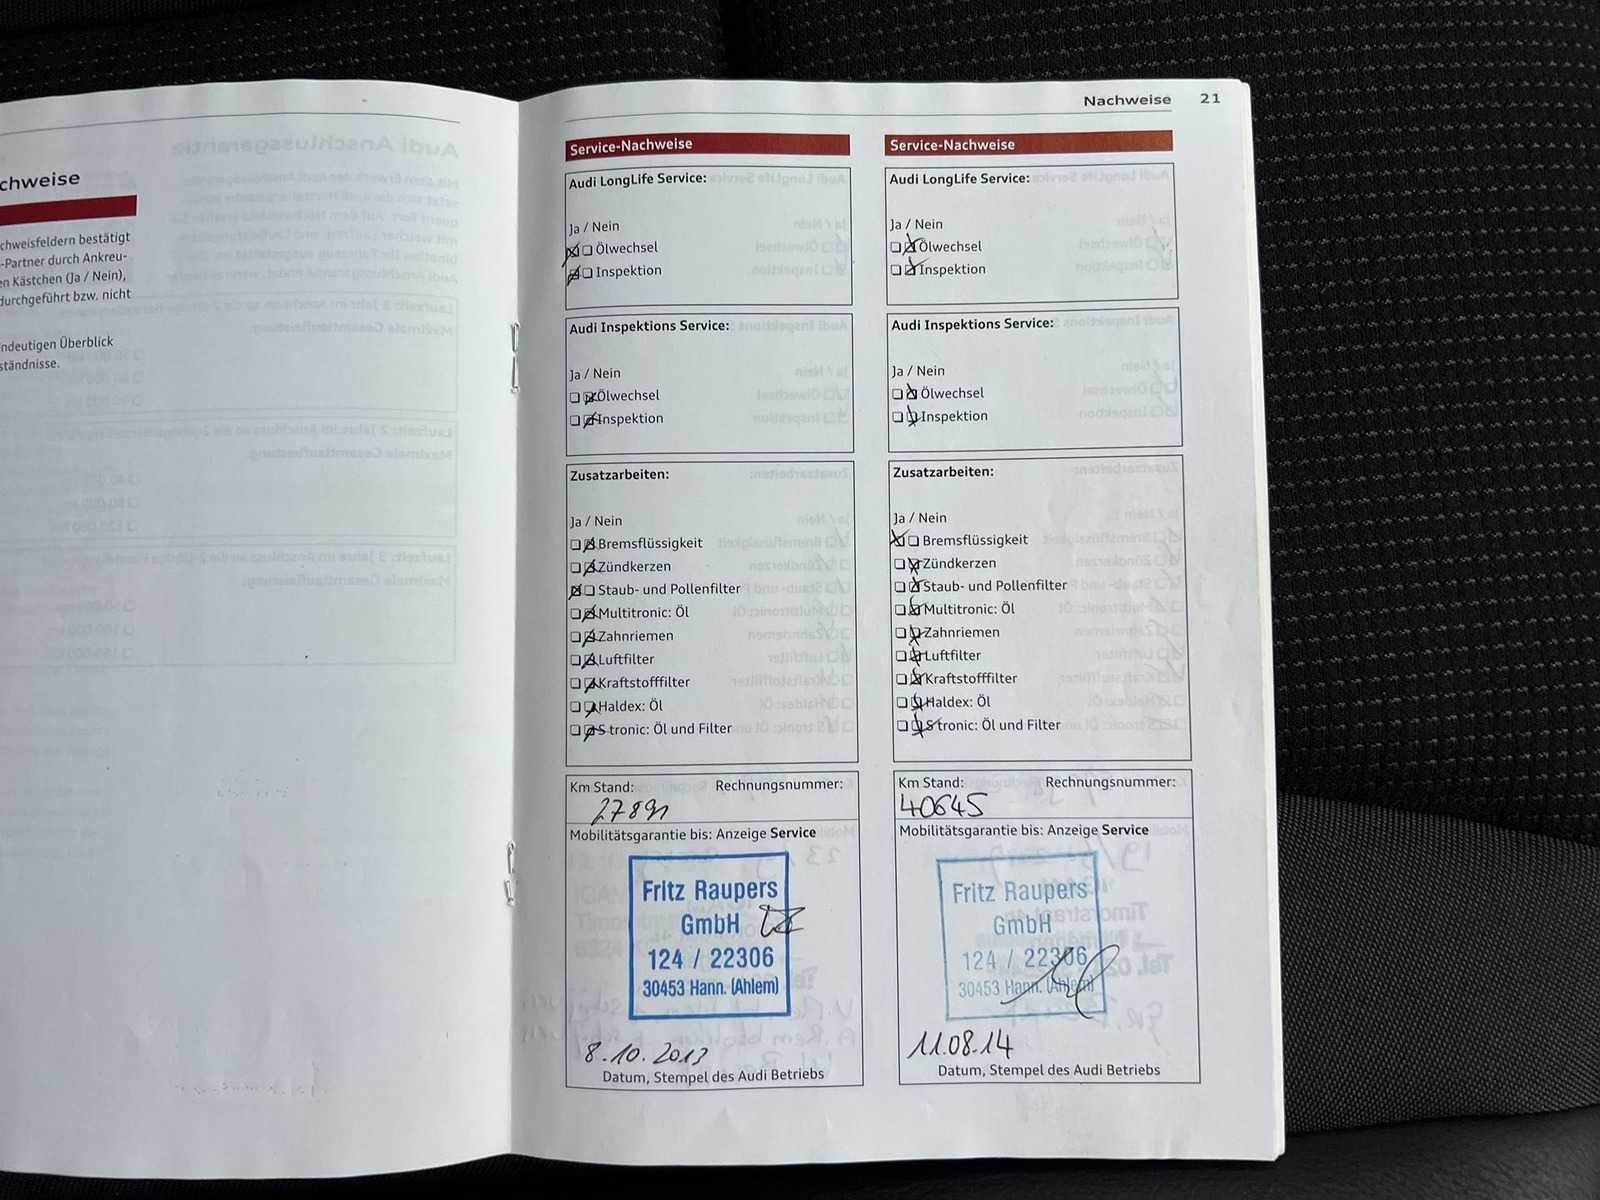 chweise
chweisfeldern bestätigt
-Partner durch Ankreu-
en Kästchen (Ja / Nein),
durchgeführt bzw. nicht
ndeutigen Überblick
ständnisse.
Nachweise 21
Service-Nachweise
Audi LongLife Service:
Ja / Nein
Ölwechsel
Inspektion
Audi Inspektions Service:
Ja / Nein
Ölwechsel
Inspektion
Zusatzarbeiten:
Ja / Nein
Bremsflüssigkeit
Zündkerzen
Staub- und Pollenfilter
Multitronic: Öl
Zahnriemen
Luftfilter
Kraftstofffilter
Haldex: Öl
S tronic: Öl und Filter
Km Stand: Rechnungsnummer:
Mobilitätsgarantie bis: Anzeige Service
Fritz Raupers
GmbH
124 / 22306
30453 Hann. (Ahlem)
8.10.2013
Datum, Stempel des Audi Betriebs
Service-Nachweise
Audi LongLife Service:
Ja / Nein
Ölwechsel
Inspektion
Audi Inspektions Service:
Ja / Nein
Ölwechsel
Inspektion
Zusatzarbeiten:
Ja / Nein
Bremsflüssigkeit
Zündkerzen
Staub- und Pollenfilter
Multitronic: Öl
Zahnriemen
Luftfilter
Kraftstofffilter
Haldex: Öl
S tronic: Öl und Filter
Km Stand: Rechnungsnummer:
40645
Mobilitätsgarantie bis: Anzeige Service
Fritz Raupers
GmbH
124 / 22306
30453 Hann. (Ahlem)
11.08.14
Datum, Stempel des Audi Betriebs